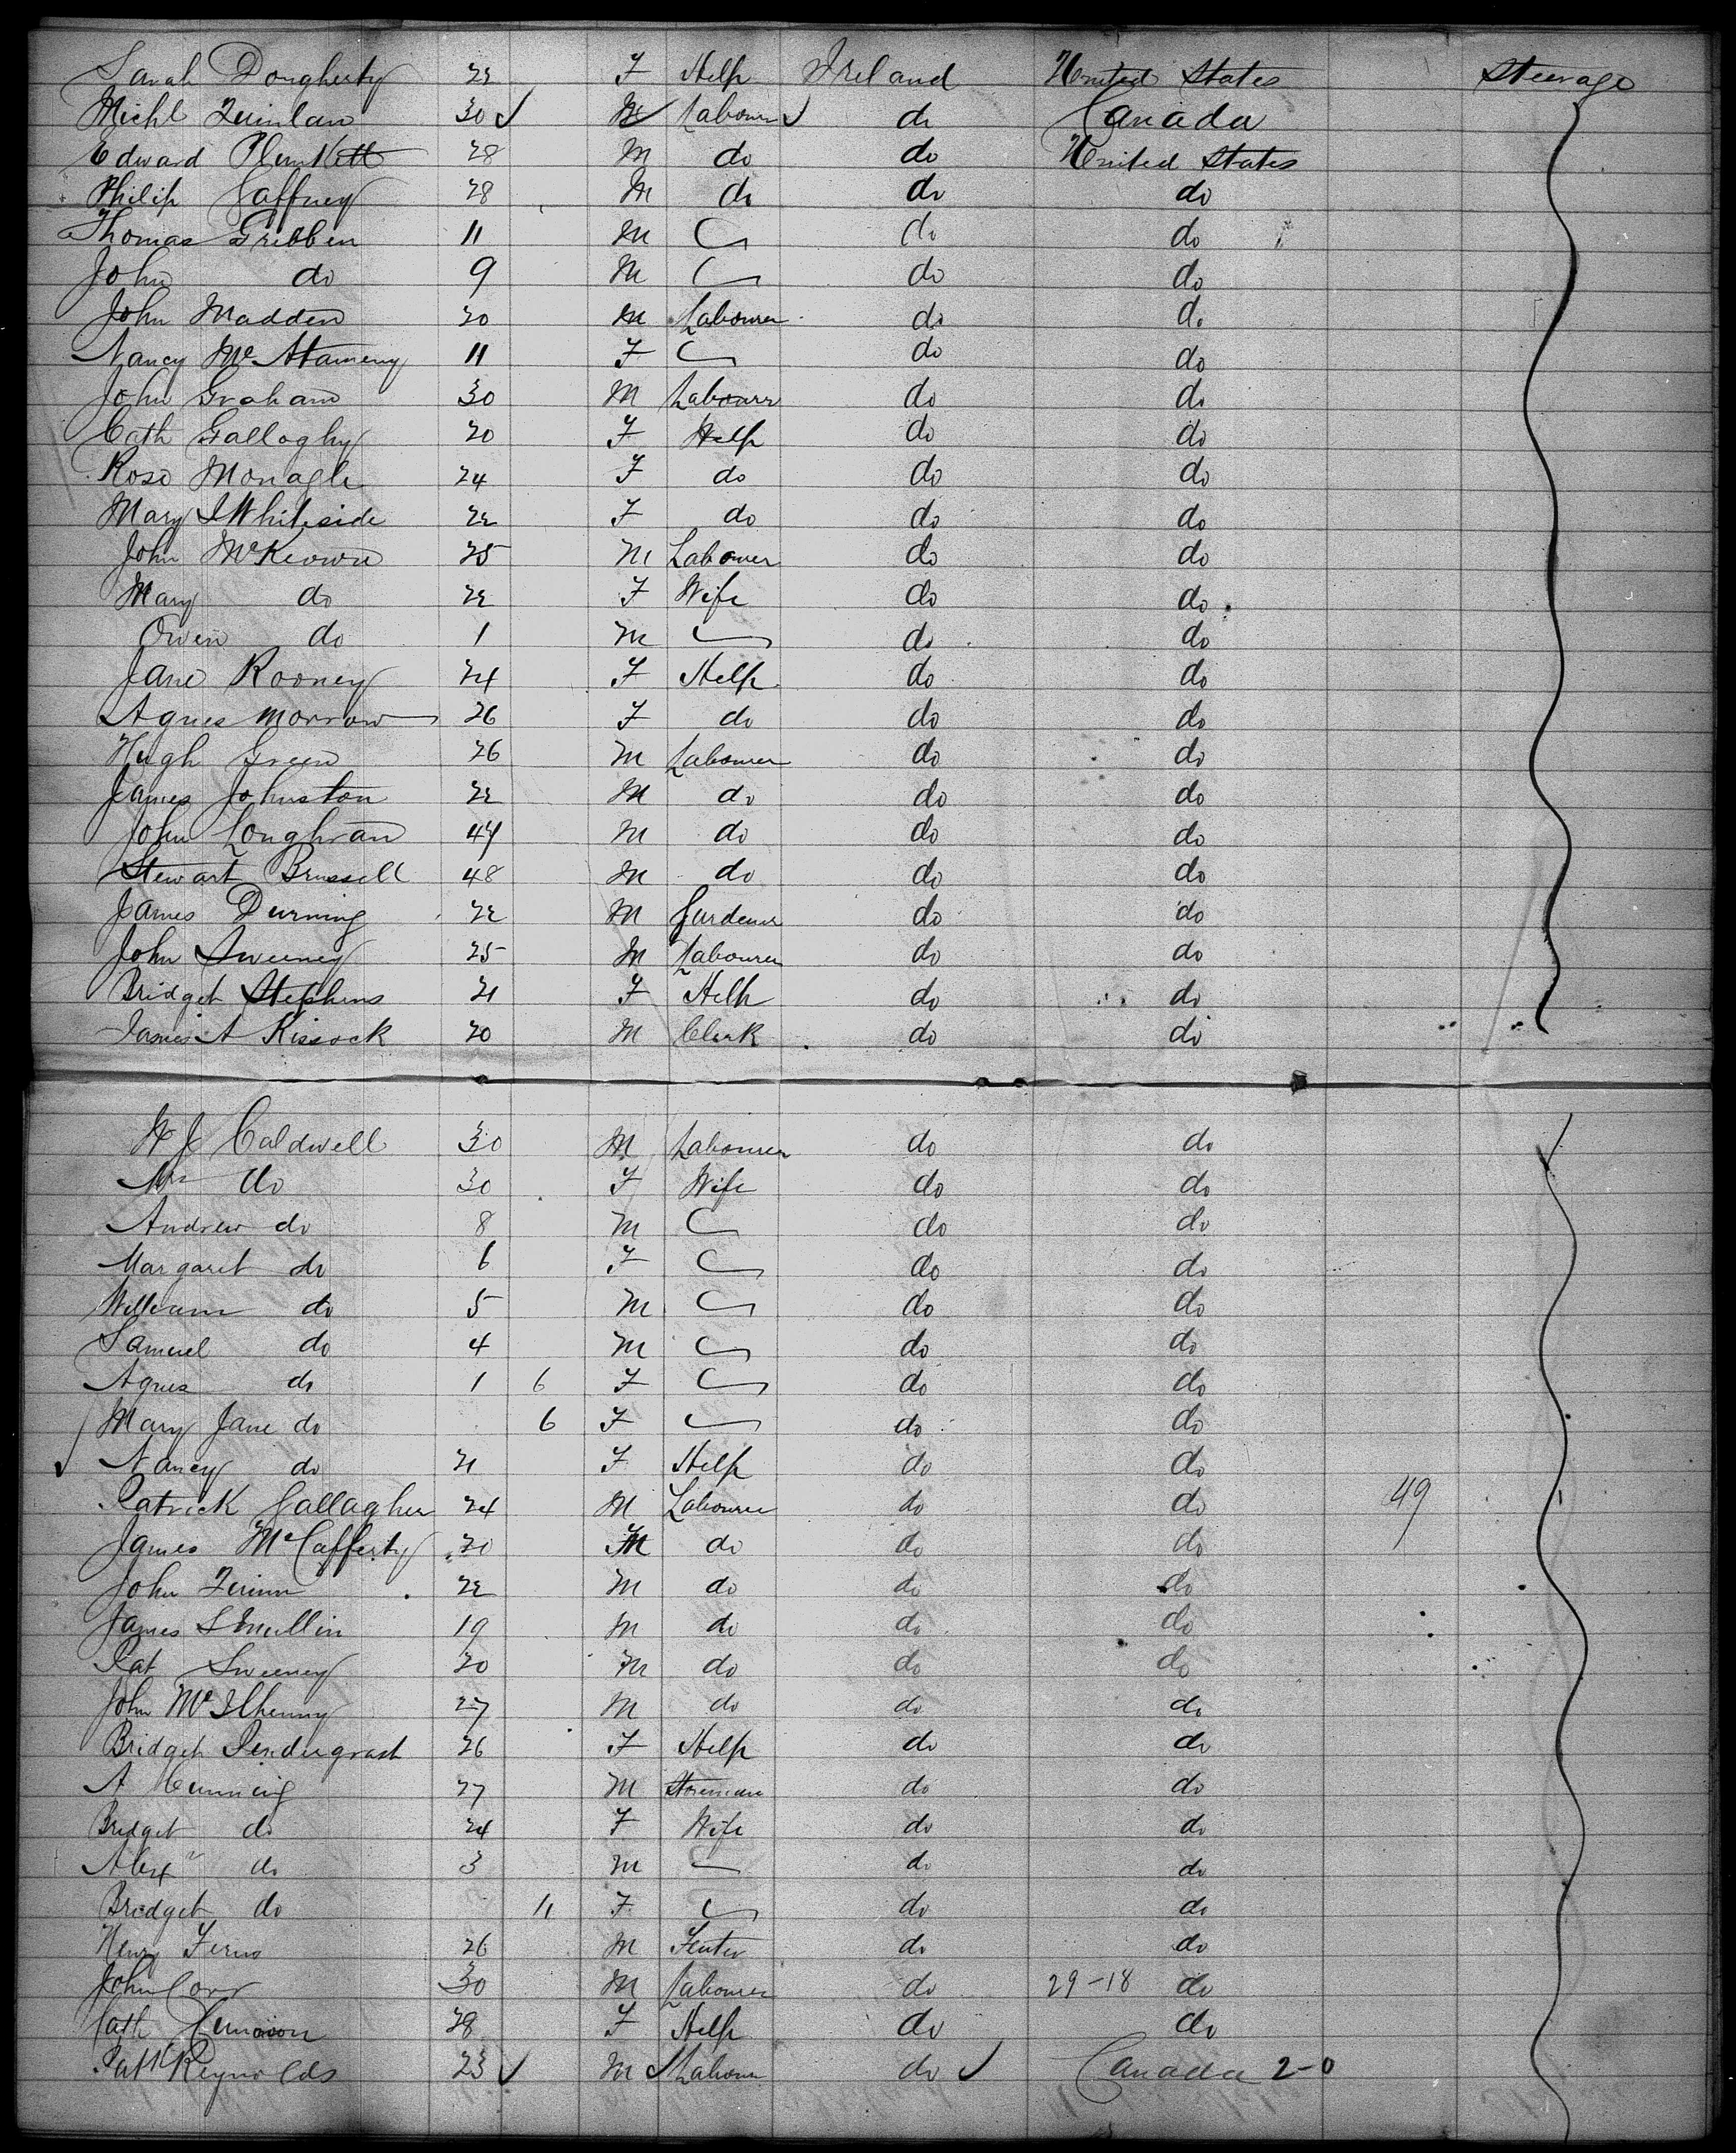 Sarah Dougherty 22 F Help Ireland United States Steerage
Michl Quinlan 30 ✓ M Labourer ✓ do Canada
Edward Plunkett 28 M do do United States
Philip Gaffney 28 M do do do
Thomas Gribben 11 M do do
John do 9 M do do
John Madden 20 M Labourer do do
Nancy Mc Atameny 11 F do do
John Graham 30 M Labourer do do
Cath Gallaghy 20 F Help do do
Rose Monagle 24 F do do do
Mary J Whiteside 22 F do do do
John McKeown 25 M Labourer do do
Mary do 22 F Wife do do
Owen do 1 M do do
Jane Rooney 24 F Help do do
Agnes Morrow 26 F do do do
Hugh Green 26 M Labourer do do
James Johnston 22 M do do do
John Loughran 44 M do do do
Stewart Brussell 48 M do do do
James Durning 22 M Gardener do do
John Sweeney 25 M Labourer do do
Bridget Stephens 21 F Help do do
James A Kissock 20 M Clerk do do
W J Caldwell 30 M Labourer do do
Mrs do 30 F Wife do do
Andrew do 8 M do do
Margaret do 6 F do do
William do 5 M do do
Samuel do 4 M do do
Agnes do 1 6 F do do
Mary Jane do 6 F do do
✓ Nancy do 21 F Help do do
Patrick Gallagher 24 M Labourer do do 49
James McCafferty 20 M do do do
John Quinn 22 M do do do
James Smullin 19 M do do do
Pat Sweeney 20 M do do do
John McIlhenny 27 M do do do
Bridget Pendergrast 26 F Help do do
A Cunning 27 M Storeman do do
Bridget do 24 F Wife do do
Alexr do 3 M do do
Bridget do 11 F do do
Henry Ferns 26 M do do
John Corr 30 M Labourer do 29-18 do
Cath 28 F Help do do
Patk Reynolds 23 ✓ M ✓ Labour do ✓ Canada 2-0